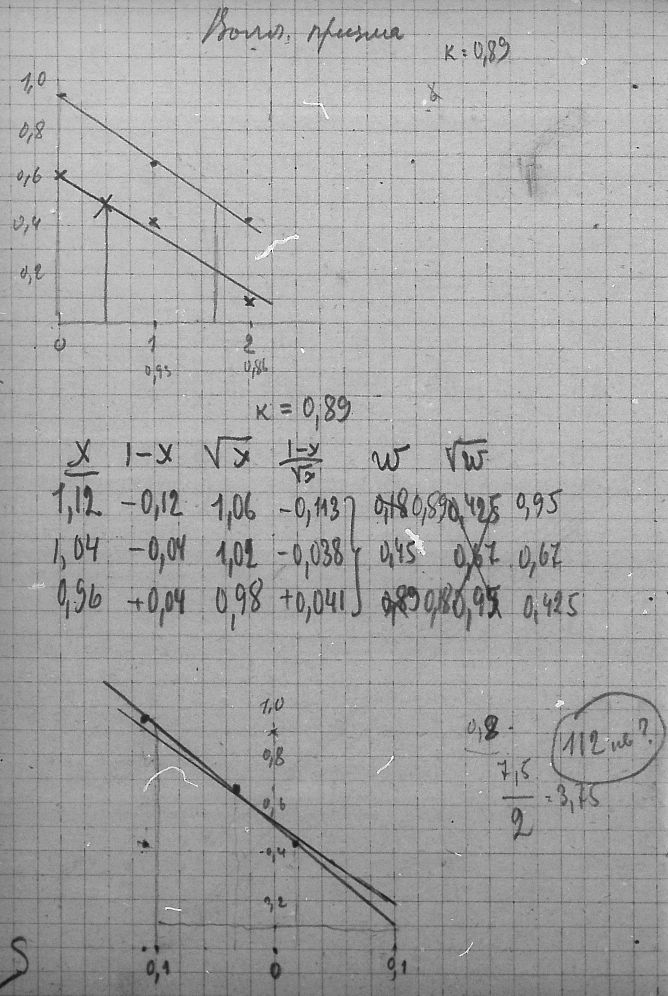 призма
к = 0,89
1,0
0,8
0,6
0,4
0,2
0 1 2
0,93 0,86
к = 0,89
x 1-x √x 1-x/√x w √w
1,12 -0,12 1,06 -0,113 0,18 0,89 0,425 0,95
1,04 -0,04 1,02 -0,038 0,45 0,67 0,67
0,96 +0,04 0,98 +0,041 0,89 0,18 0,95 0,425
1,0
0,8
0,6
0,4
0,2
0,8
7,5/2 = 3,75
0,1 0 0,1
S